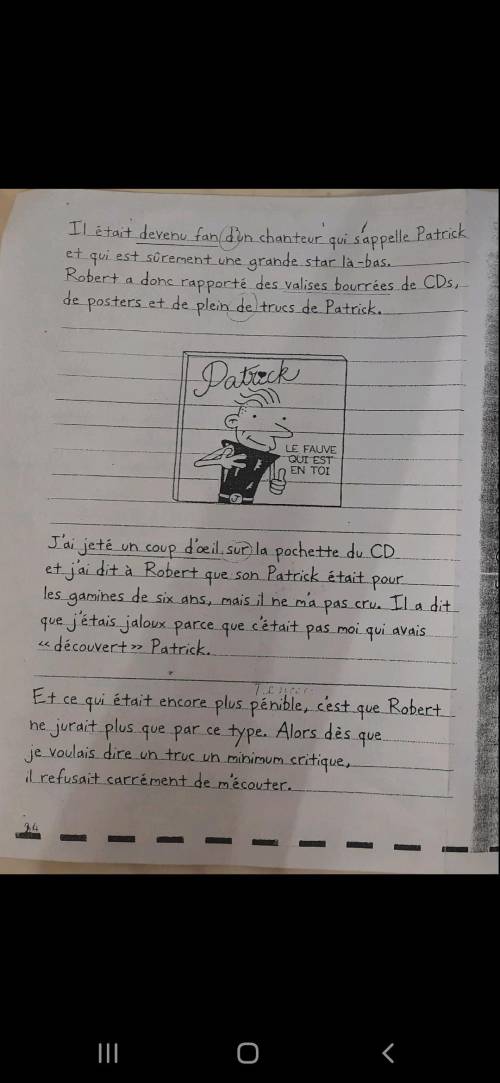 Il était devenu fan d'un chanteur qui s'appelle Patrick
et qui est sûrement une grande star là-bas.
Robert a donc rapporté des valises bourrées de CDs,
de posters et de plein de trucs de Patrick.
Patrick
LE FAUVE
QUI EST
EN TOI
J'ai jeté un coup d'œil sur la pochette du CD
et j'ai dit à Robert que son Patrick était pour
les gamines de six ans, mais il ne m'a pas cru. Il a dit
que j'étais jaloux parce que c'était pas moi qui avais
«découvert» Patrick.
Et ce qui était encore plus pénible, c'est que Robert
ne jurait plus que par ce type. Alors dès que
je voulais dire un truc un minimum critique,
il refusait carrément de m'écouter.